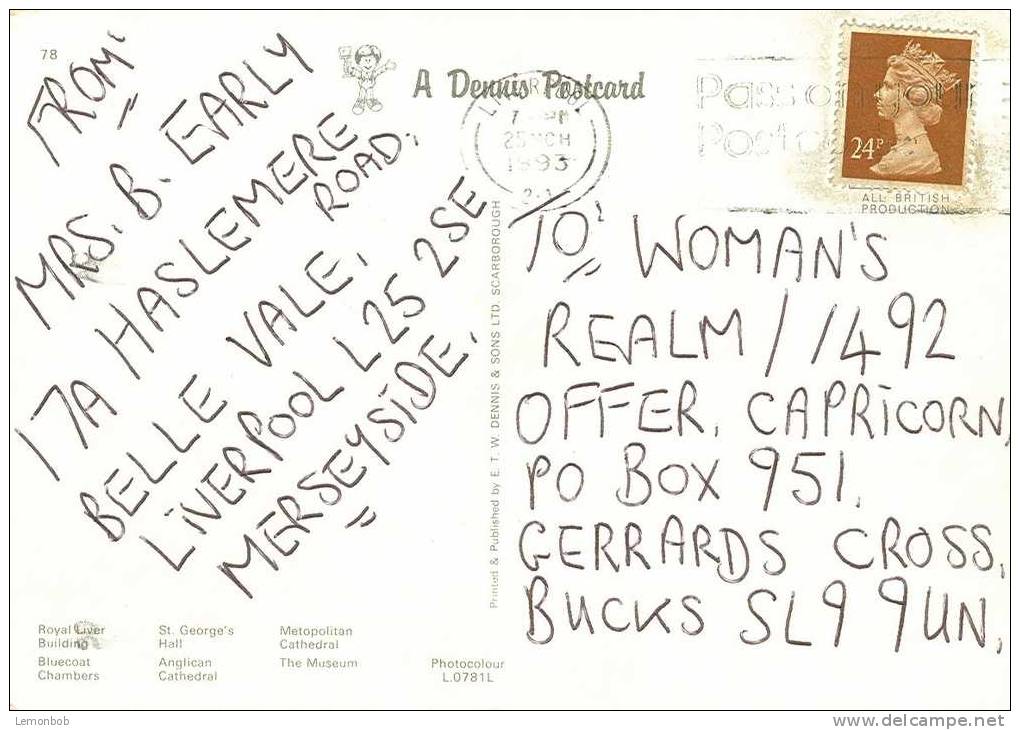 78
A Dennis Postcard
FROM'
MRS. B. EARLY
17A HASLEMERE
ROAD.
BELLE VALE,
LIVERPOOL L25 2SE
MERSEYSIDE.
Royal Liver
Building
St. George's
Hall
Metopolitan
Cathedral
Bluecoat
Chambers
Anglican
Cathedral
The Museum
Photocolour
L.0781L
Printed & Published by E. T. W. DENNIS & SONS LTD. SCARBOROUGH
25 MCH
1993
24P
ALL BRITISH
PRODUCTION
TO'
WOMAN'S
REALM/1492
OFFER, CAPRICORN,
PO BOX 951,
GERRARDS CROSS,
BUCKS SL9 9UN,
Lemonbob
www.delcampe.net